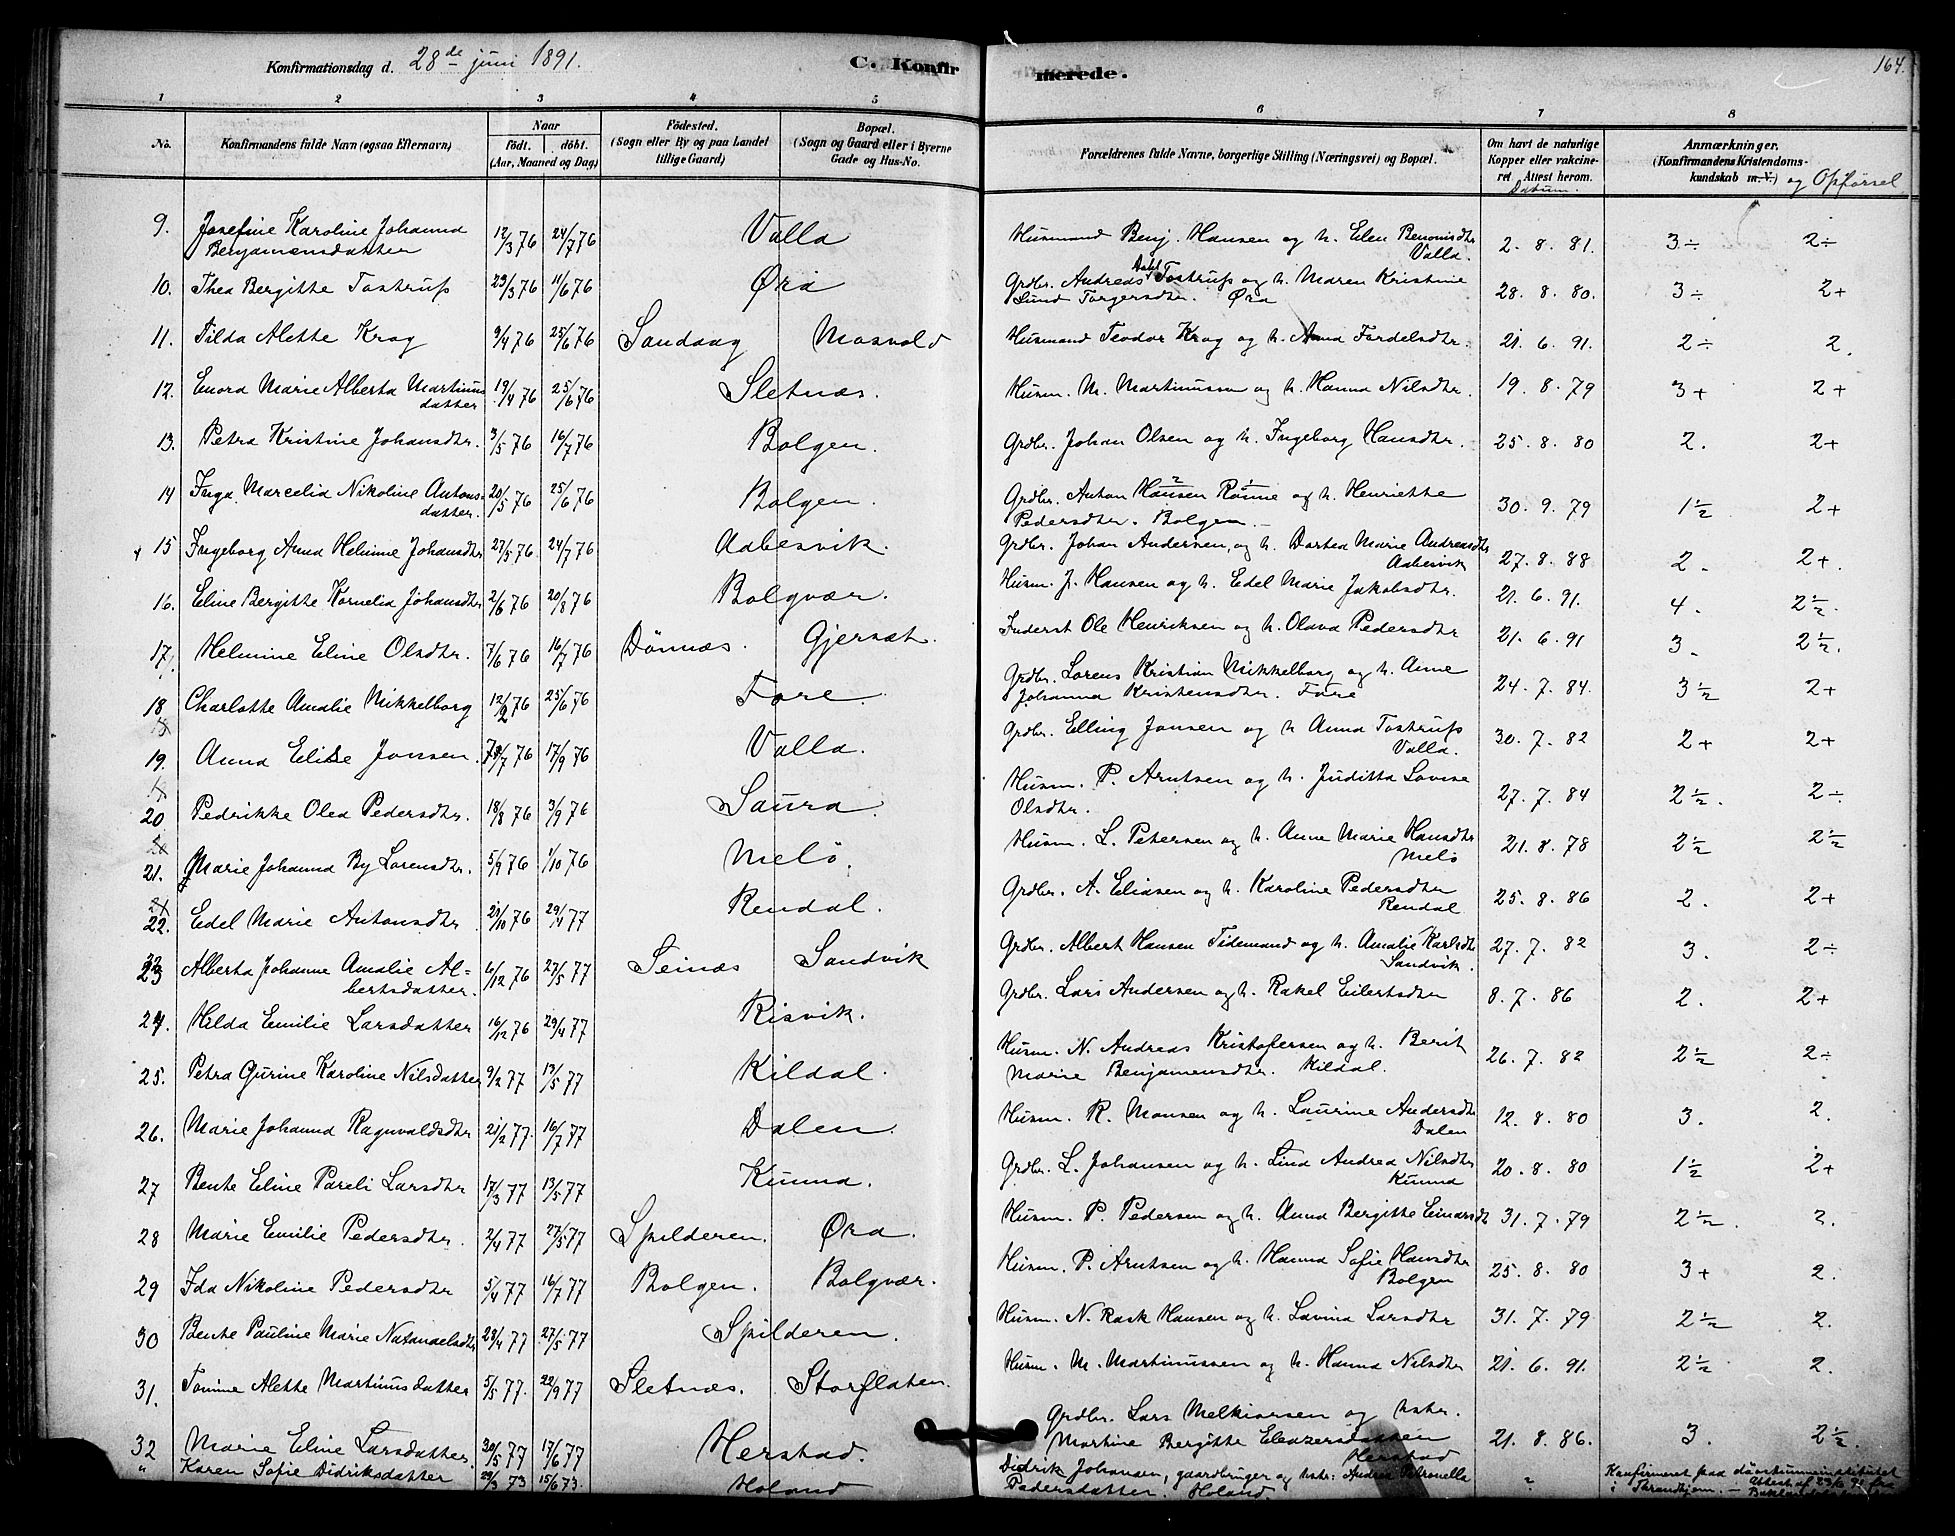 Konfirmationsdag d. 28de juni 1891.
C. Konfirmerede.
164.
1 2 3 4 5 6 7 8
No.
Konfirmandens fulde Navn (ogsaa Efternavn)
Naar
Födt. döbt.
(Aar, Maaned og Dag)
Födested.
(Sogn eller By og paa Landet tillige Gaard)
Bopæl.
(Sogn og Gaard eller i Byerne Gade og Hus-No.
Forældrenes fulde Navne, borgerlige Stilling (Næringsvei) og Bopæl.
Om havt de naturlige Kopper eller vakcineret. Attest herom.
Datum.
Anmærkninger.
(Konfirmandens Kristendomskundskab m. V.) og Opførsel
9. Josefine Karoline Johanna Benjamensdatter 12/3 76 24/7 76 Valla Husmand Benj. Hansen og h. Elen Benonisdtr Valla. 2. 8. 81. 3÷ 2÷
10. Thea Bergitte Tostrup 23/3 76 11/6 76 Øra Grdbr. Andreas Dahl Tostrup og h. Maren Kristine Lund Torgersdtr. Øra 28. 8. 80. 3÷ 2+
11. Tilda Alette Krog 9/4 76 25/6 76 Sandaag Mosvold Husmand Teodor Krog og h. Anna Fordelsdtr. 21. 6. 91. 2÷ 2.
12. Enora Marie Alberta Martinusdatter 19/4 76 25/6 76 Sletnæs. Husm. M. Martinussen og h. Hanna Nilsdtr. 19. 8. 79 3+ 2+
13. Petra Kristine Johansdtr. 3/5 76 16/7 76 Bolgen. Grdbr. Johan Olsen og h. Ingeborg Hansdtr. 25. 8. 80 2. 2+
14 Inga Marcelia Nikoline Antonsdatter. 20/5 76 25/6 76 Bolgen. Grdbr. Anton Hansen Rønne og h. Henriette Pedersdtr. Bolgen. 30. 9. 79 1½ 2+
15 Ingeborg Anna Helmine Johansdtr 27/5 76 24/7 76 Aabesvik. Grdbr. Johan Andersen, og h. Dortea Marie Andreasdtr Aabesvik 27. 8. 88 2. 2+.
16. Eline Bergitte Kornelia Johansdtr 2/6 76 20/8 76 Bolgvær. Husm. J. Hansen og h. Edel Marie Jakobsdtr. 21. 6. 91. 4. 2½.
17. Helmine Eline Olsdtr. 7/6 76 16/7 76 Dønnæs. Gjersæt. Inderst Ole Henriksen og h. Olava Pedersdtr 21. 6. 91 3. 2½.
18 Charlotte Amalie Mikkelborg 12/2 76 25/6 76 Fore. Grdbr. Lorens Kristian Mikkelborg og h. Anne Johanna Kristensdtr. Fore 24. 7. 84. 3½ 2+
19. Anna Elise Jonsen. /7 76 17/9 76 Valla. Grdbr. Elling Jonsen og h Anna Tostrup Valla. 30. 7. 82 2+ 2+
20 Pedrikke Olea Pedersdtr. 18/8 76 3/9 76 Saura. Husm. P. Arntsen og h. Juditta Lovise Olsdtr. 27. 7. 84 2½. 2÷.
21. Marie Johanna By Lorensdtr. 5/9 76 1/10 76 Melö. Husm. L. Petersen og h. Anne Marie Hansdtr Melö 21. 8. 78 2½ 2½
22. Edel Marie Antonsdtr 21/10 76 29/4 77 Rendal. Grdbr. A. Eliasen og h. Karoline Pedersdtr Rendal 25. 8. 86 2. 2+
23 Alberta Johanne Amalie Albertsdatter. 6/12 76 27/5 77 Seinæs Sandvik Grdbr. Albert Hansen Tidemand og h. Amalie Karlsdtr Sandvik. 27. 7. 82 3. 2÷
24. Hilda Emilie Larsdatter 16/12 76 29/4 77 Risvik. Grdbr. Lars Andersen og h. Rakel Eilertsdtr 8. 7. 86 2. 2+
25. Petra Gurine Karoline Nilsdatter 9/2 77 13/5 77 Kildal. Husm. N. Andreas Kristofersen og h. Berit Marie Benjamensdtr. Kildal. 26. 7. 82 2½ 2÷
26. Marie Johanna Ragnvaldsdtr 21/2 77. 16/7 77 Dalen. Husm. R. Monsen og h. Laurine Andersdtr Dalen 12. 8. 80 3. 2.
27 Bente Eline Pareli Larsdtr 17/3 77 13/5 77 Kunna. Grdbr. L. Johansen og h. Lina Andrea Nilsdtr Kunna 20. 8. 80 1½ 2+
28 Marie Emilie Pedersdtr. 2/4 77 27/5 77 Spilderen. Øra. Husm. P. Pedersen og h. Anna Bergitte Einarsdt 31. 7. 79 2½. 2.
29 Ida Nikoline Pedersdtr 5/4 77 16/7 77 Bolgen. Bolgvær. Husm. P. Arntsen og h. Hanna Sofie Hansdtr Bolgen 25. 8. 80 3+ 2.
30 Bente Pauline Marie Natanaelsdtr 23/4 77 27/5 77 Spilderen. Husm. N. Rask Hansen og h. Lovina Larsdtr 31. 7. 79 2½ 2.
31. Tomine Alette Martinusdatter 5/5 77. 22/9 77 Sletnæs. Storflaten. Husm. M. Martinussen og h. Hanna Nilsdtr 21. 6. 91. 2½ 2.
32 Marie Eline Larsdatter. 30/5 77 17/6 77 Herstad. Grdbr. Lars Melkiorsen og hstr. Martine Bergitte Eleazersdatter Herstad 21. 8. 86. 3. 2½.
" Karen Sofie Didriksdatter 29/3 73 15/6 73. Holand Didrik Johansen, gaardbruger og hstr: Andrea Petronella Pedersdatter. Holand. " Konfirmeret paa døvstummeinstitutet i Throndhjem. — Attest af 23/6 91 fra